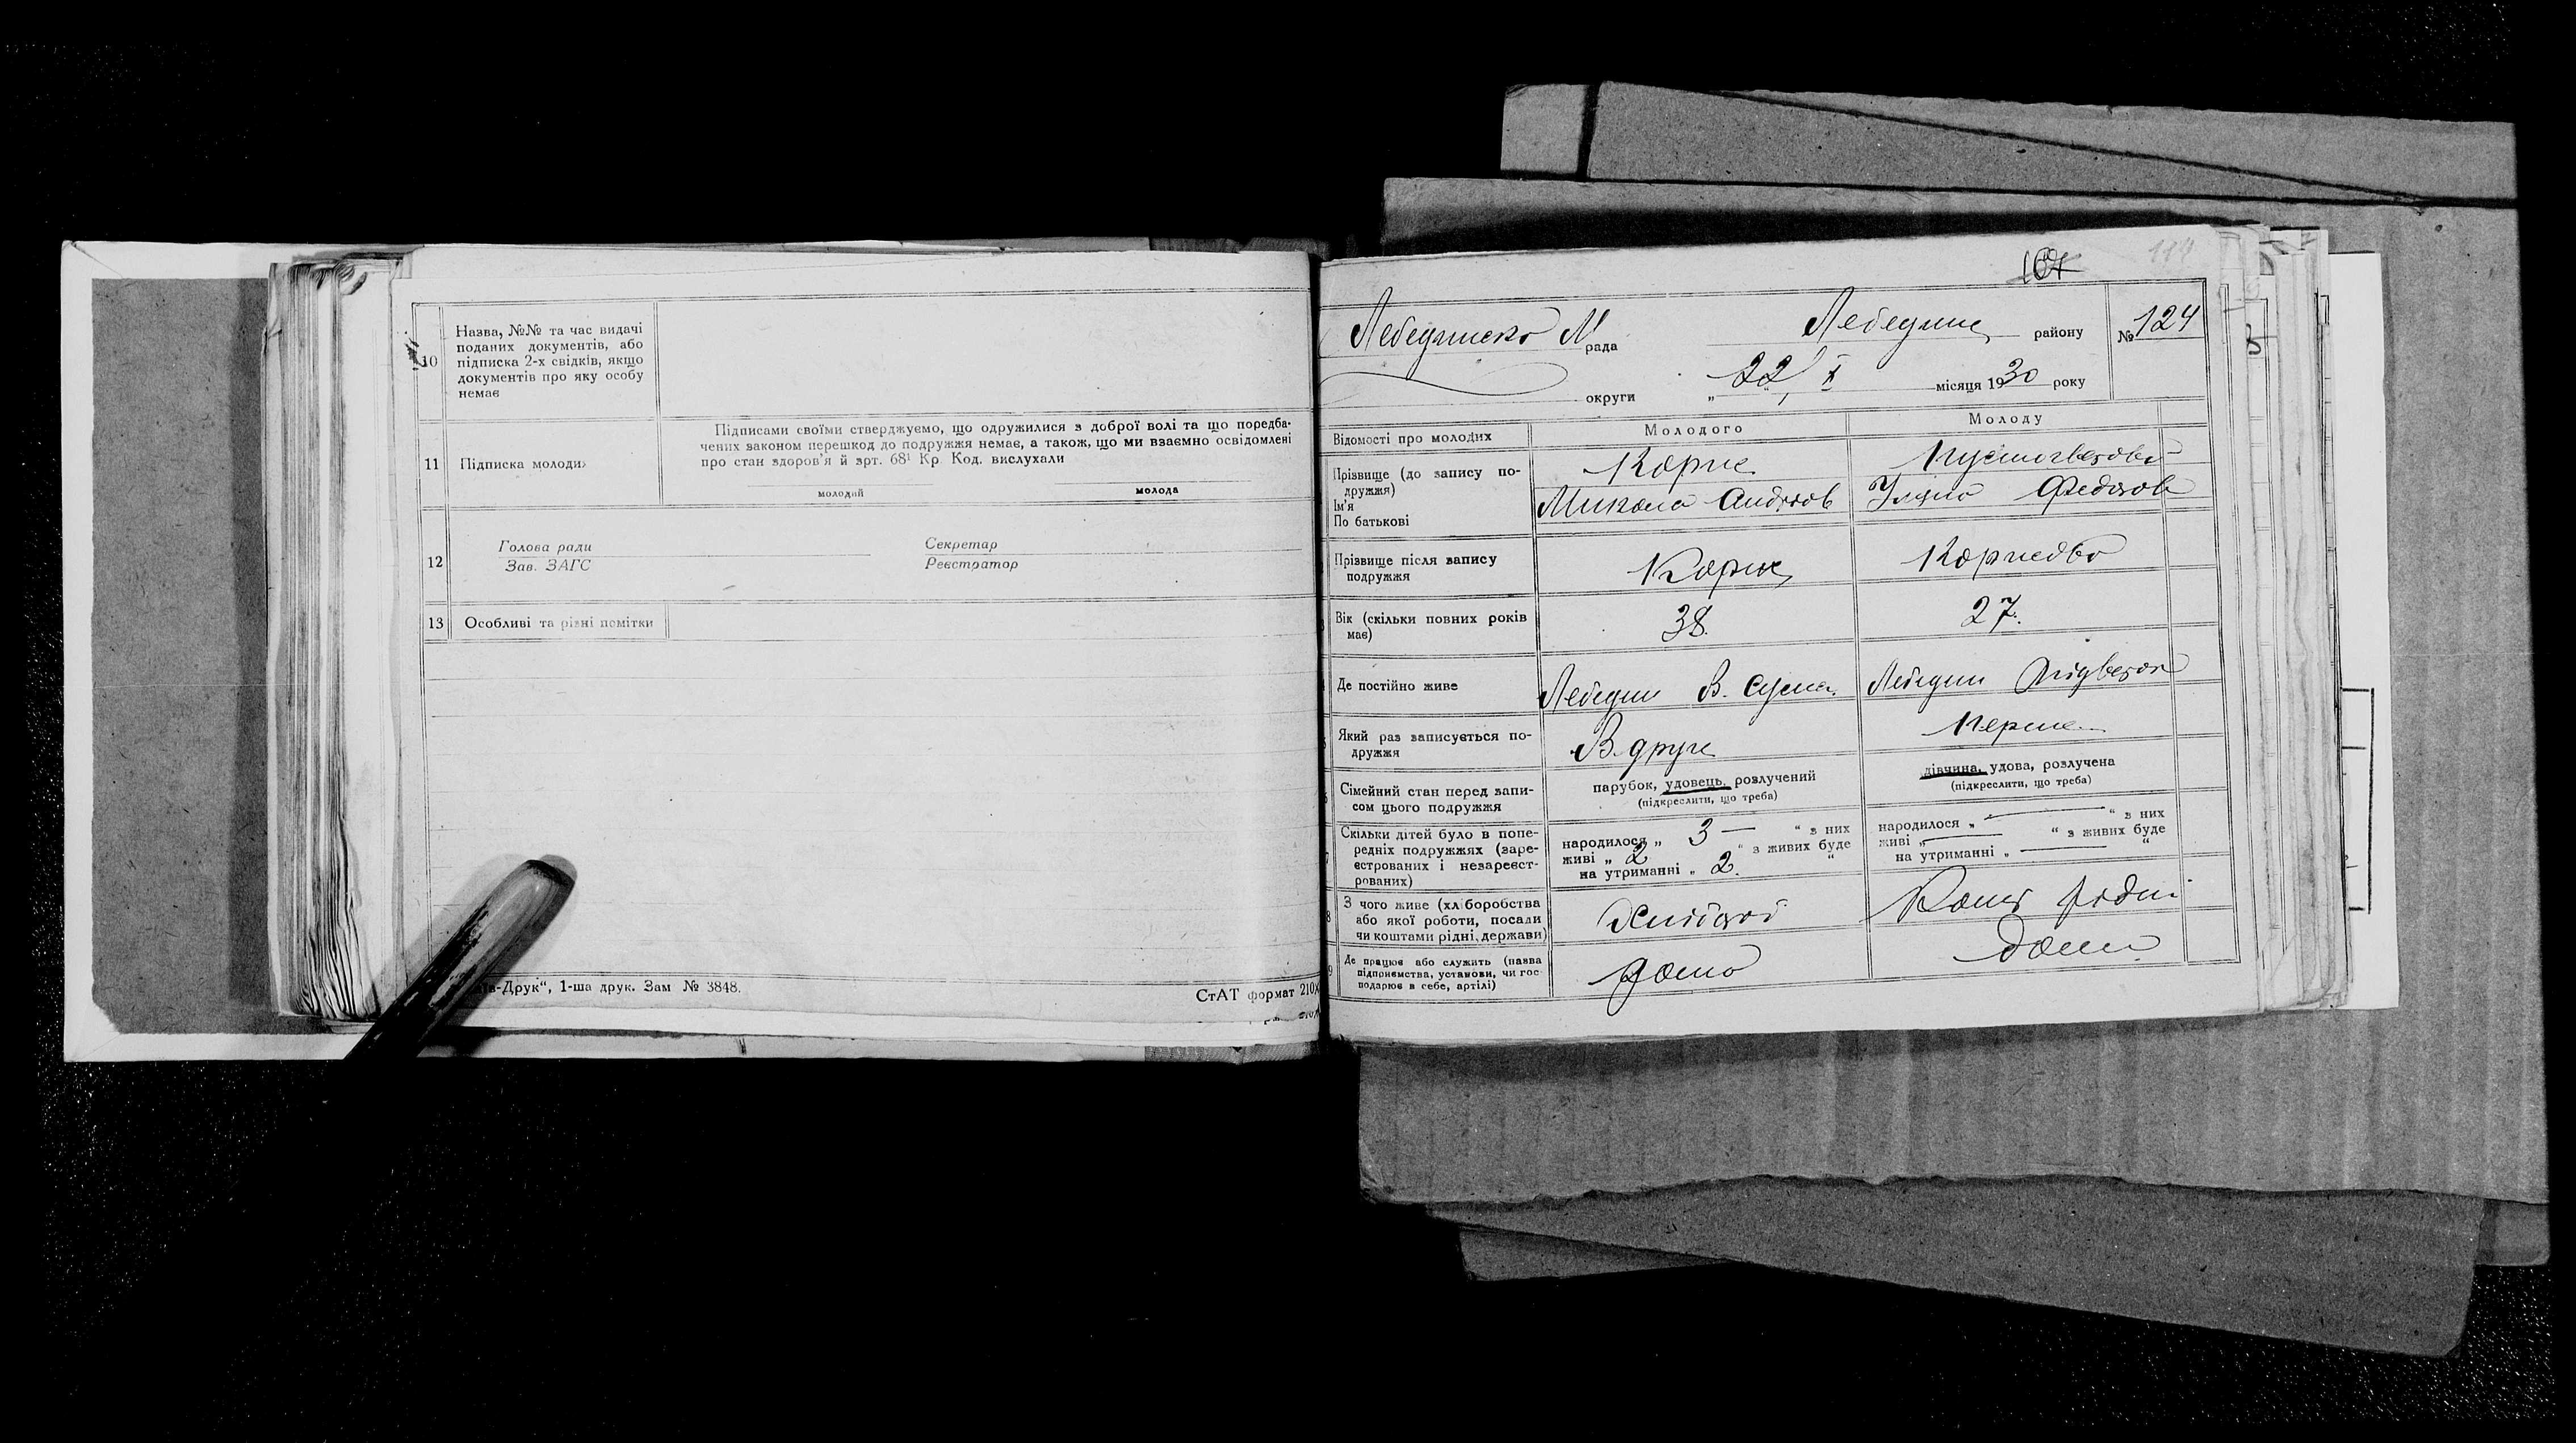 10
Назва, №№ та час видачі
поданих документів, або
підписка 2-х свідків, якщо
документів про яку особу
немає
11 Підписка молодих
Підписами своїми стверджуємо, що одружилися з доброї волі та що поредба-
чених законом перешкод до подружжя немає, а також, що ми взаємно освідомлені
про стан здоров'я й арт. 68¹ Кр. Код. вислухали
молодий молода
12
Голова ради Секретар
Зав. ЗАГС Реєстратор
13 Особливі та різні помітки
в-Друк", 1-ша друк. Зам № 3848.
СтАТ формат 210х
174
рада
Лебедин району
№ 124
округи „ 22, X місяця 1930 року
Відомості про молодих Молодого Молоду
Прізвище (до запису по-
дружжя)
Ім'я
По батькові
Корж
Микола Андрєєв
Федоров
Прізвище після запису
подружжя
Корж
Вік (скільки повних років
має)
38.
27.
Де постійно живе
Лебедин В.
Лебедин
Який раз записується по-
дружжя
В друге
Перше
Сімейний стан перед запи-
сом цього подружжя
парубок, удовець, розлучений
(підкреслити, що треба)
дівчина, удова, розлучена
(підкреслити, що треба)
Скільки дітей було в попе-
редніх подружжях (заре-
єстрованих і незареєст-
рованих)
народилося „ 3 — “ з них
живі „ 2 “ з живих буде
на утриманні „ 2. “
народилося „ — “ з них
живі „ — “ з живих буде
на утриманні „ — “
8
З чого живе (хліборобства
або якої роботи, посади
чи коштами рідні, держави)
Кошт рідні
9
Де працює або служить (назва
підприємства, установи, чи гос-
подарює в себе, артілі)
дома
дома